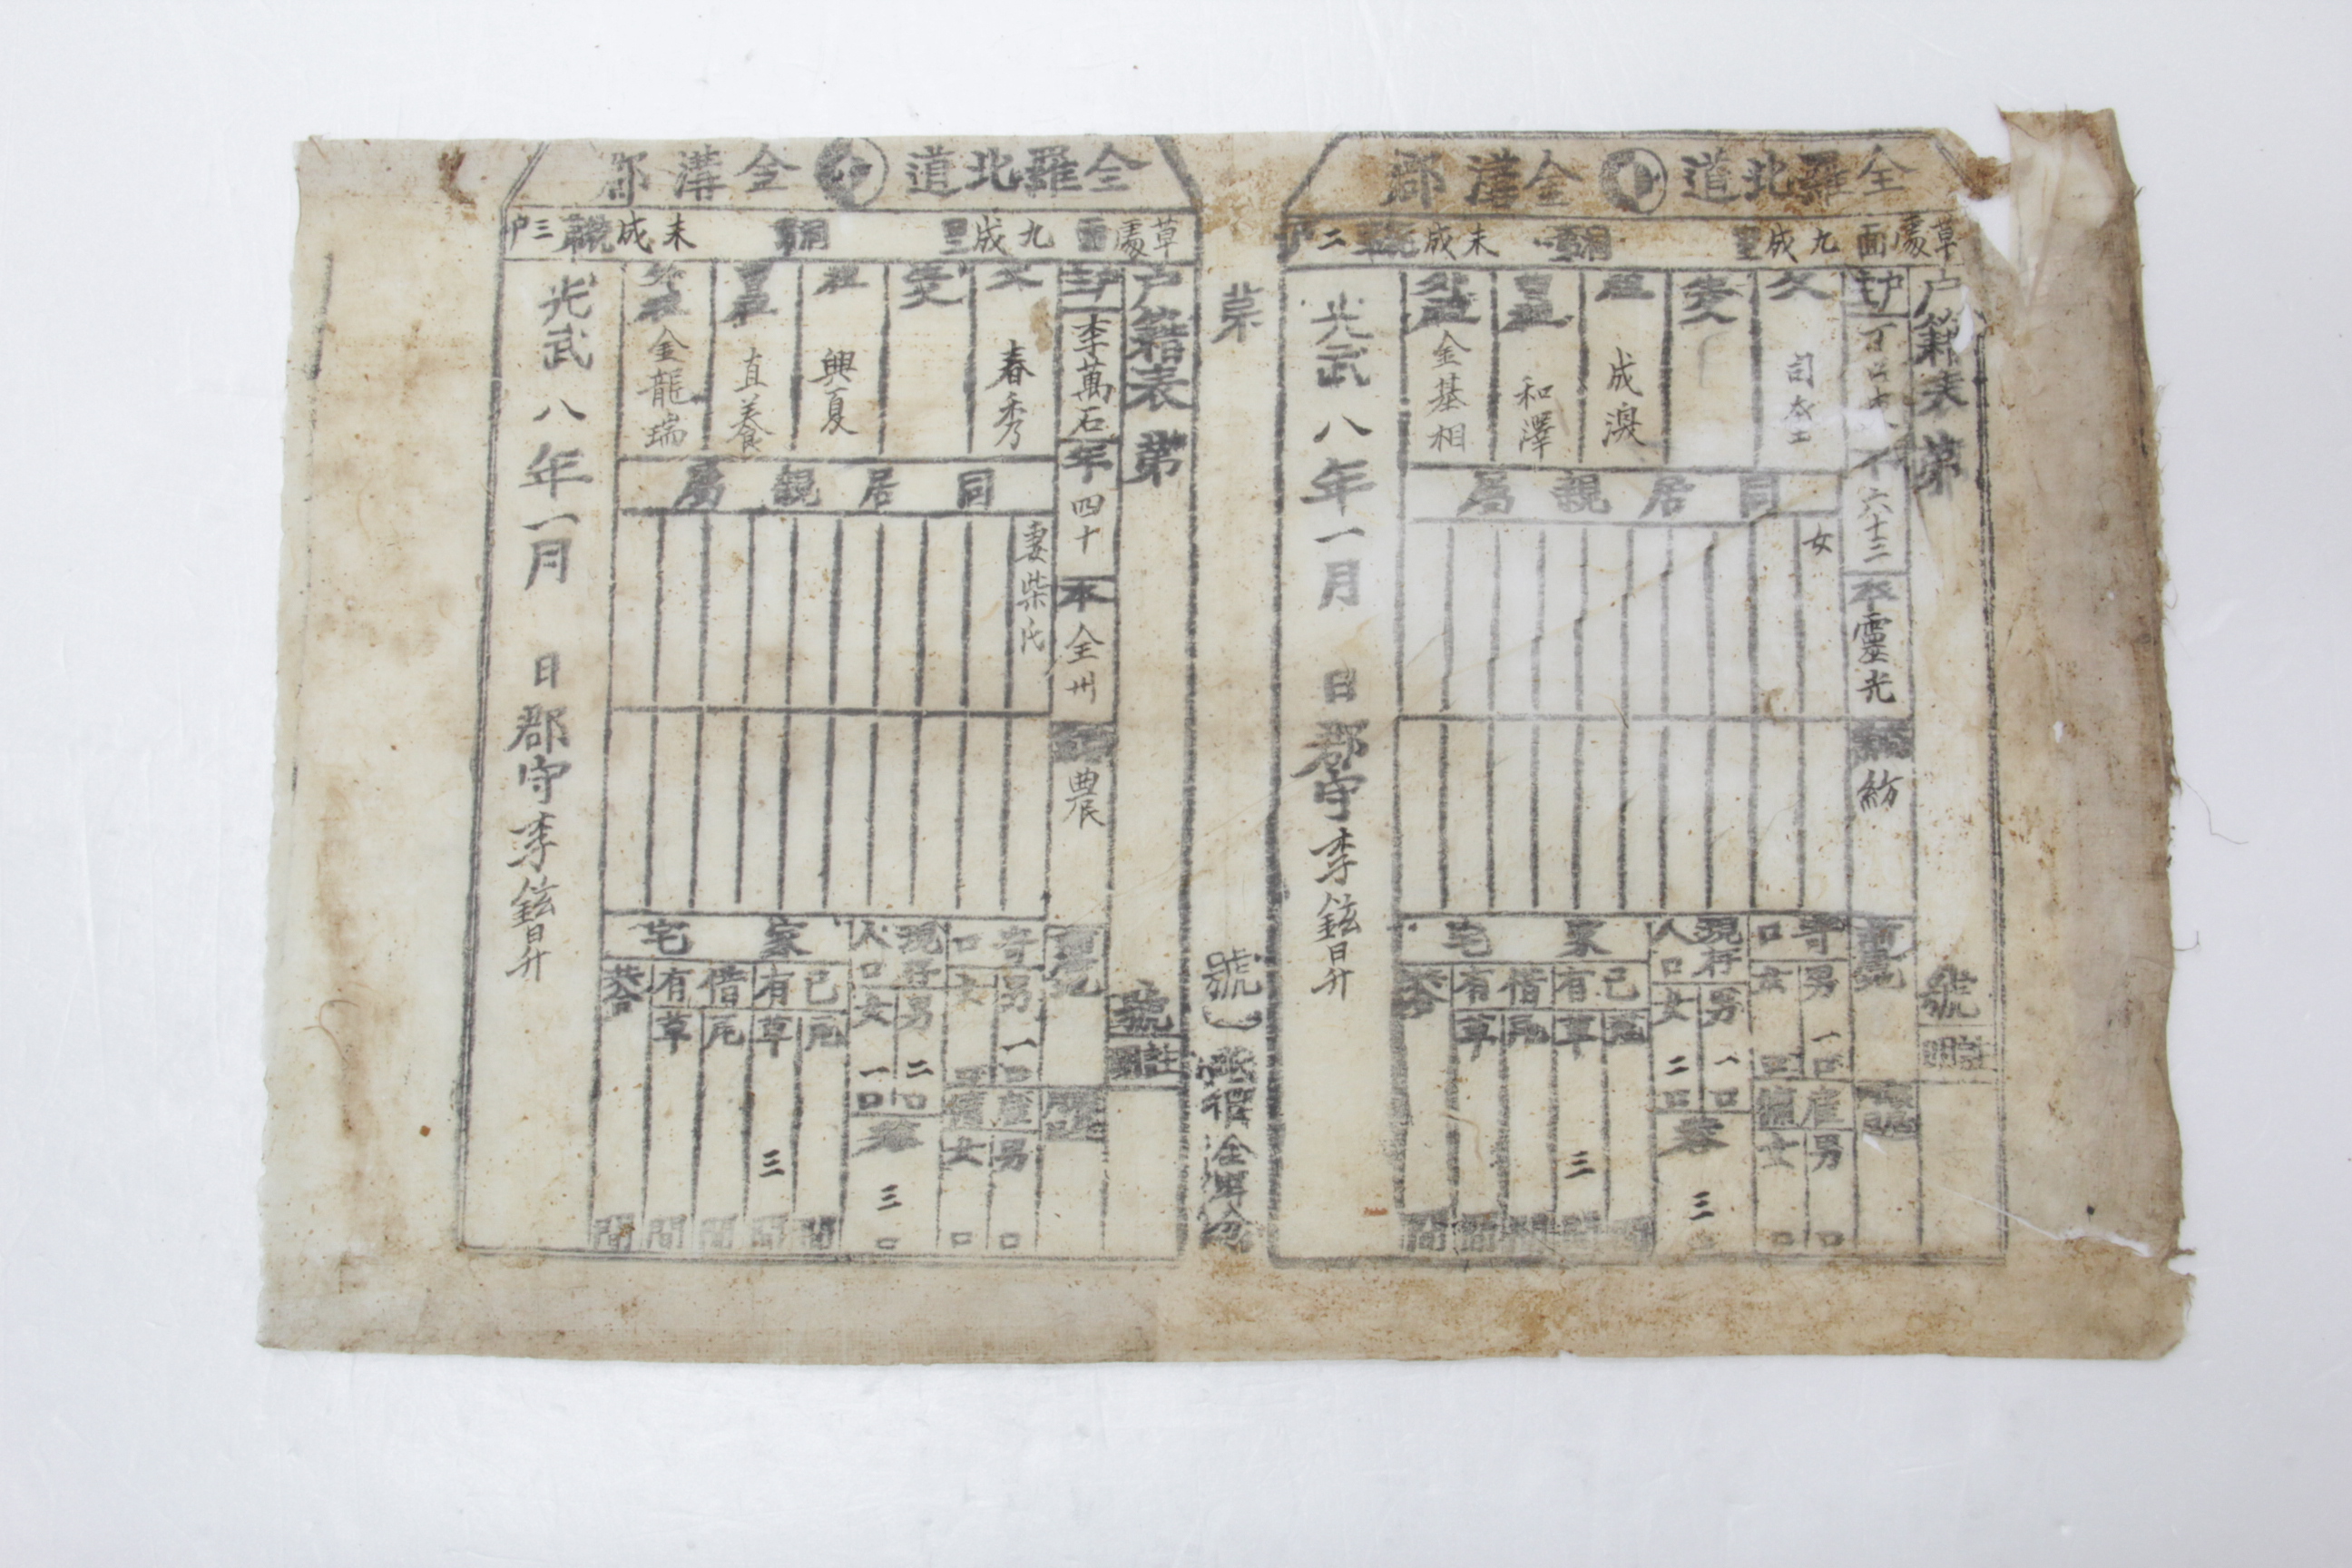 全羅北道 全溝郡
草處面 九成里 洞 末成 統 二戶
戶籍表 第 號
戶主
六十三
本 靈光
紡
父
生父
祖 成淏
曾祖 和澤
外祖 金基相
同居親屬
女
寄口 男 一口 女 口
雇傭 男 口 女 口
現存人口 男 一口 女 二口
共 三
家宅
己有 瓦 草 三間
借有 瓦 草 間
共合 間
光武八年一月 日 郡守 李鉉昇
第
號
全羅北道 全溝郡
草處面 九成里 洞 末成 統 三戶
戶籍表 第 號
戶主 李萬石
年 四十
本 全州
農
父 春秀
生父
祖 興夏
曾祖 直養
外祖 金龍瑞
同居親屬
妻柴氏
寄口 男 一口 女 口
雇傭 男 口 女 口
現存人口 男 二口 女 一口
共 三口
家宅
己有 瓦 草 三間
借有 瓦 草 間
共合 間
光武八年一月 日 郡守 李鉉昇